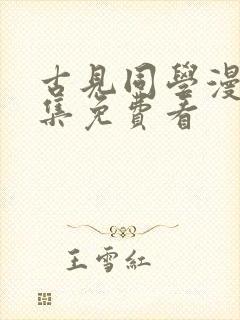 古見同學漫
集免費看
王雪紅